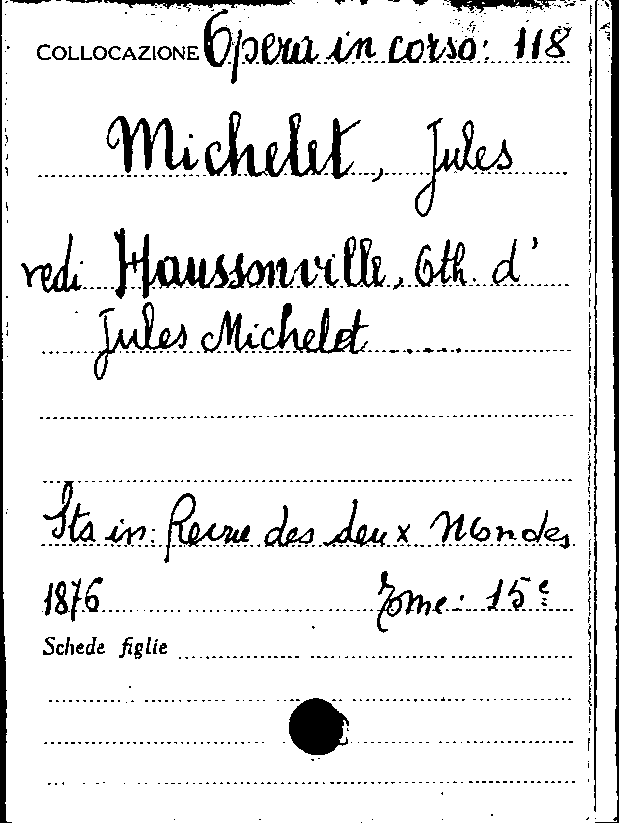 COLLOCAZIONE Opera in corso: 118
Michelet, Jules
vedi Haussonville, Oth. d'
Jules Michelet .....
Sta in: Revue des deux Mondes
1876 Tome: 15e
Schede figlie